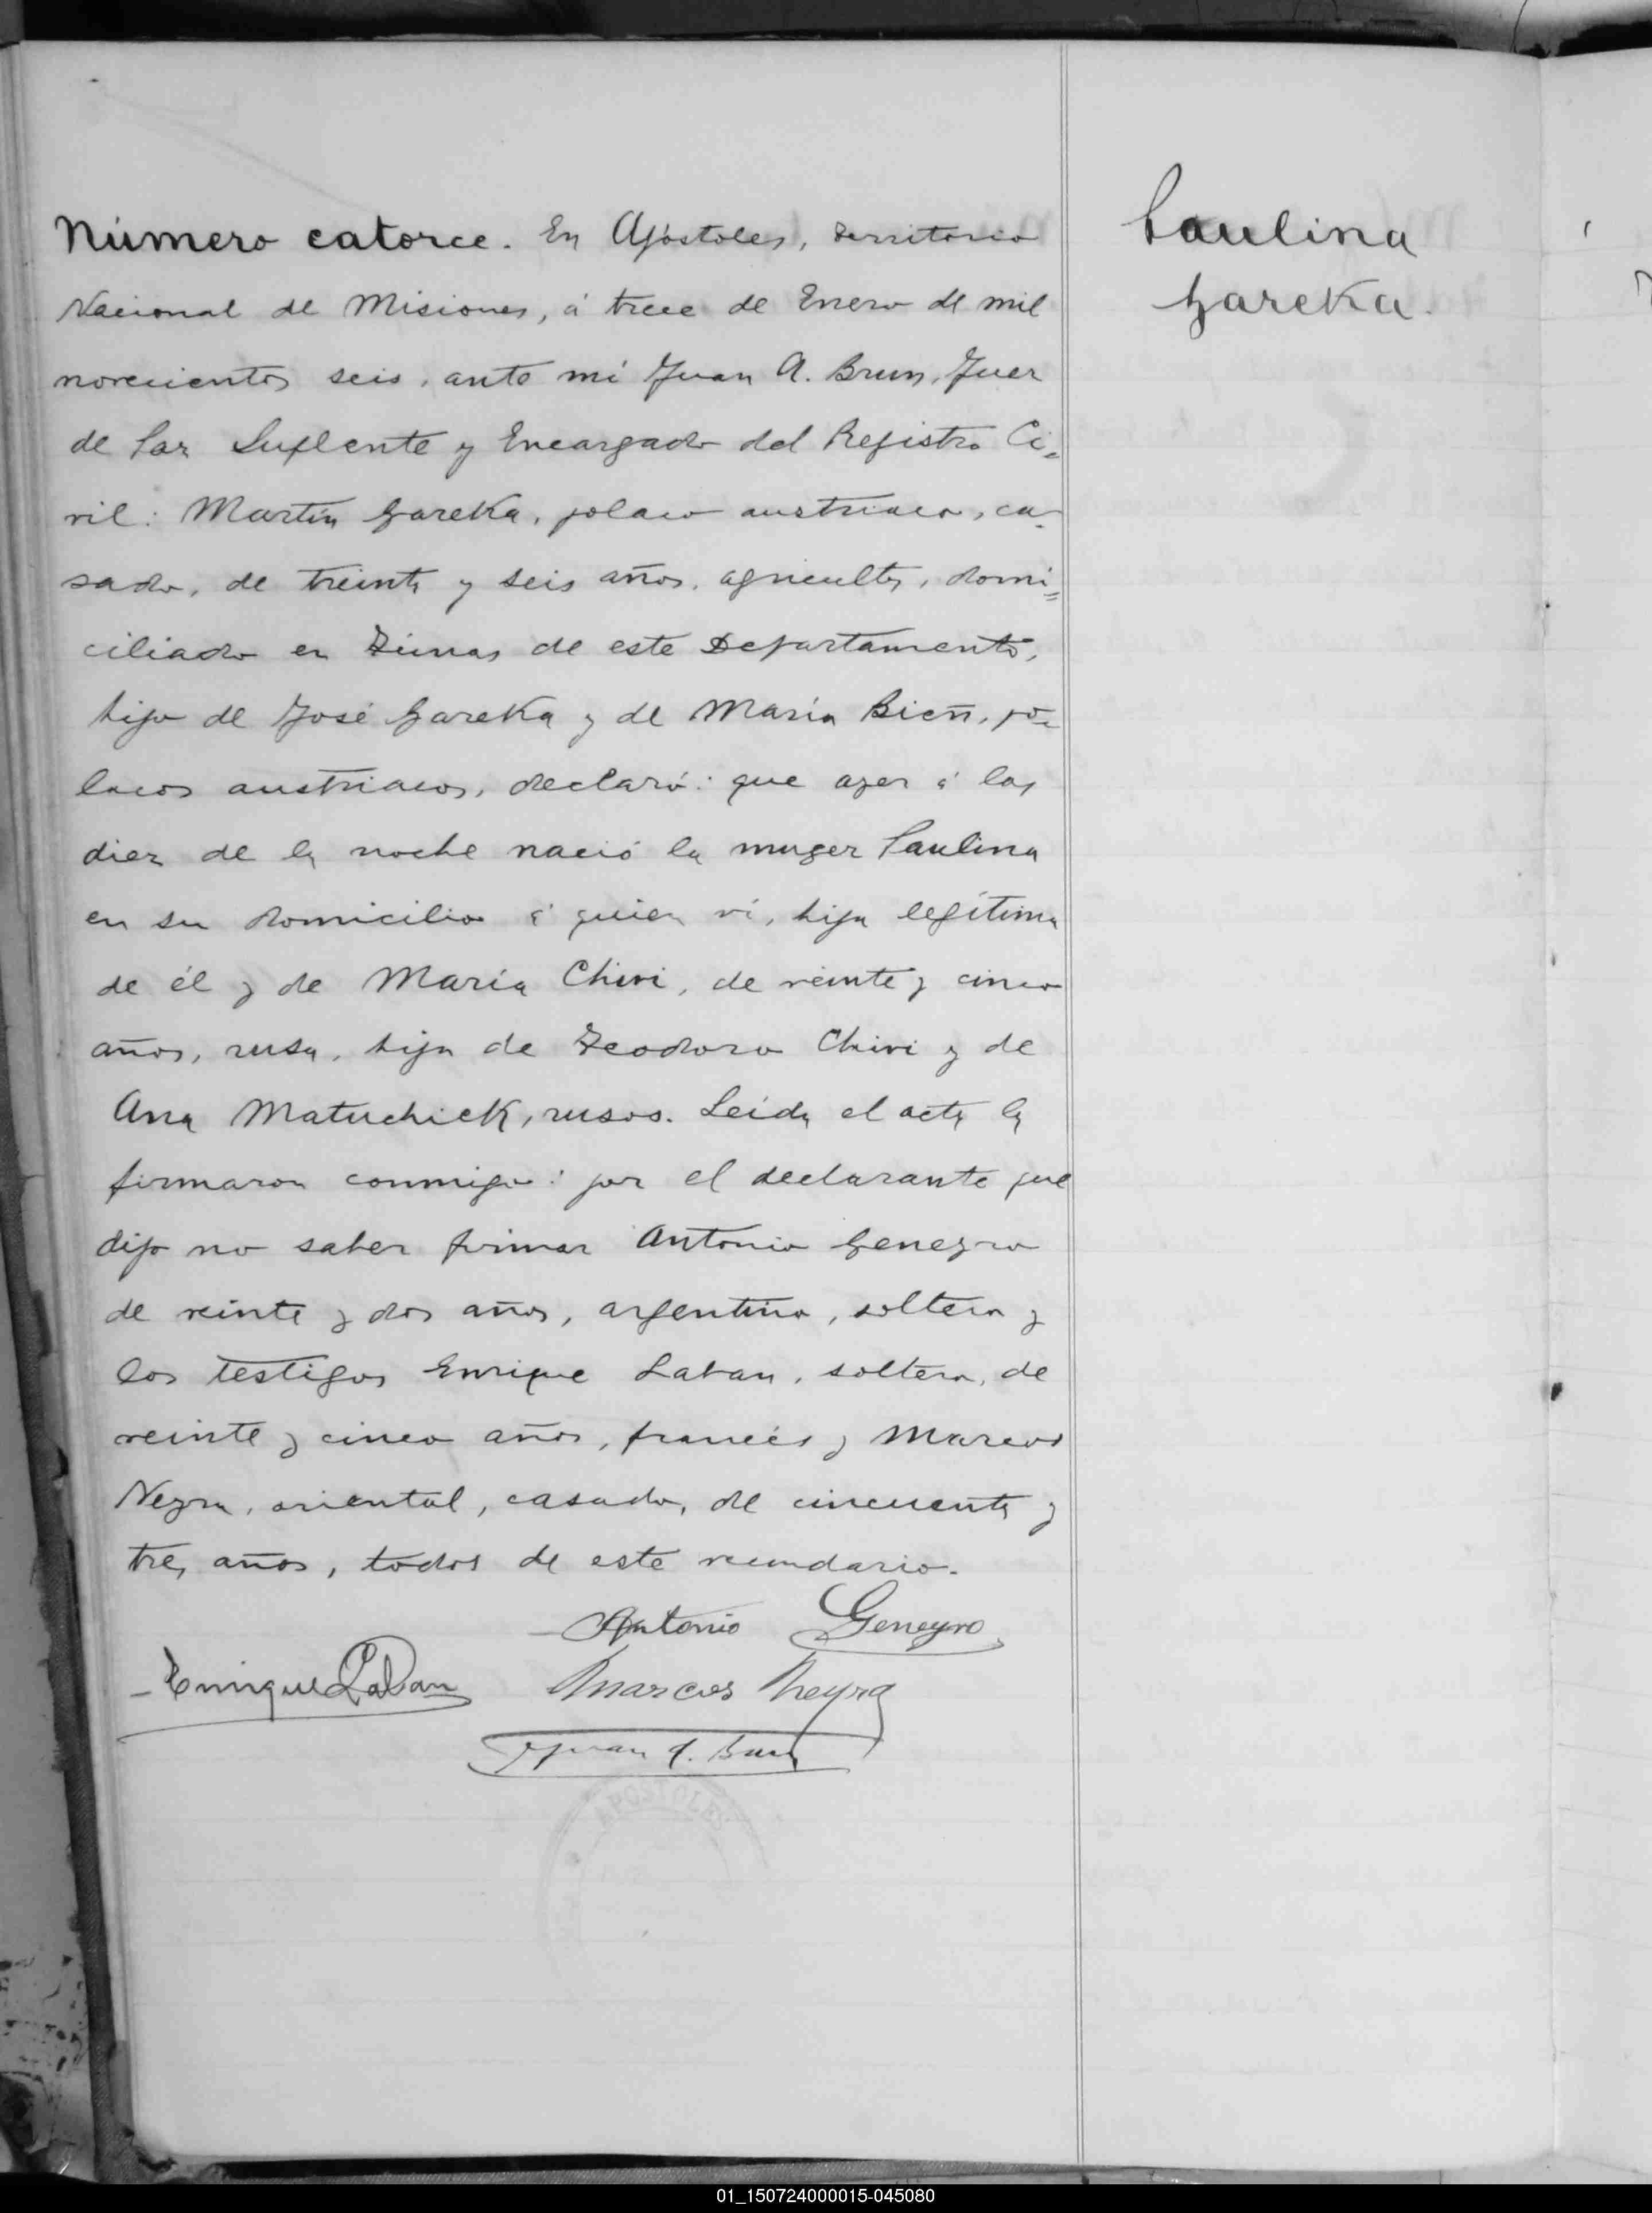 Número catorce. En Apóstoles, Territorio
Nacional de Misiones, á trece de Enero de mil
novecientos seis, ante mí Juan A. Brun, Juez
de Paz Suplente y Encargado del Registro Ci=
vil: Martín Gareka, polaco austriaco, ca-
sado, de treinta y seis años, agricultor, domi=
ciliado en Tunas de este Departamento,
hijo de José Gareka y de María Bień, po=
lacos austriacos, declaró: que ayer á las
diez de la noche nació la muger Paulina
en su domicilio á quien ví, hija legítima
de él y de María Chivi, de veinte y cinco
años, rusa, hija de Teodoro Chivi y de
Ana Matuchick, rusos. Leída el acta la
firmaron conmigo: por el declarante que
dijo no saber firmar Antonio Geneyro
de veinte y dos años, argentino, soltero y
los testigos Enrique Laban, soltero, de
veinte y cinco años, francés y Marcos
Neyra, oriental, casado, de cincuenta y
tres años, todos de este vecindario.
Antonio Geneyro
Enrique Laban Marcos Neyra
Juan A. Brun
APOSTOLES
Paulina
Gareka.
01_150724000015-045080